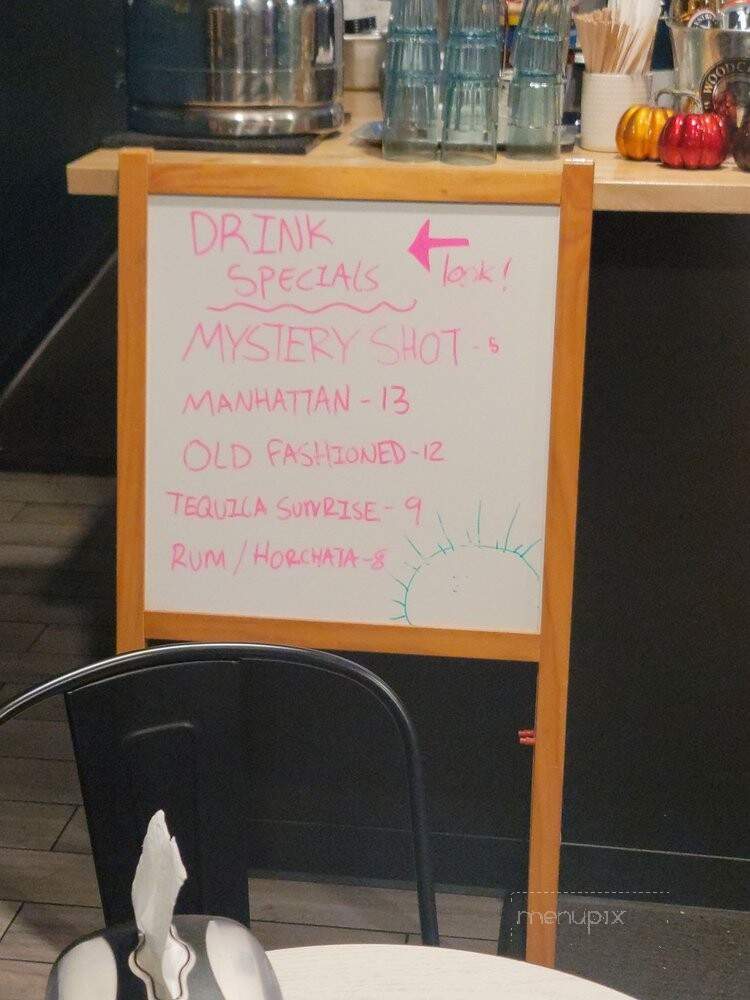 WOODC
DRINK
SPECIALS
look!
MYSTERY SHOT - 5
MANHATTAN - 13
OLD FASHIONED - 12
TEQUILA SUNRISE - 9
RUM / HORCHATA - 8
menupix